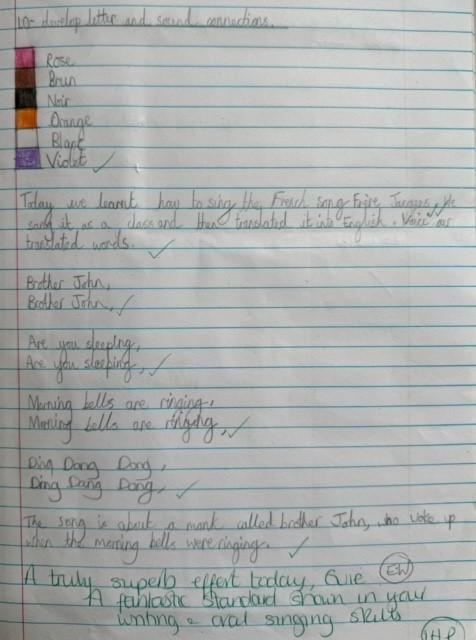 LO- develop letter and sound connections.
Rose
Brun
Noir
Orange
Blanc
Violet
Today we learnt how to sing the French song Frère Jacques. We
sang it as a class and then translated it into English. our
translated words.
Brother John,
Brother John,
Are you sleeping,
Are you sleeping,
Morning bells are ringing,
Morning bells are ringing,
Ding Dang Dong,
Ding Dang Dong,
The song is about a monk called brother John, who woke up
when the morning bells were ringing.
A truly superb effort today, Evie EW
A fantastic standard shown in your
writing & oral singing skills